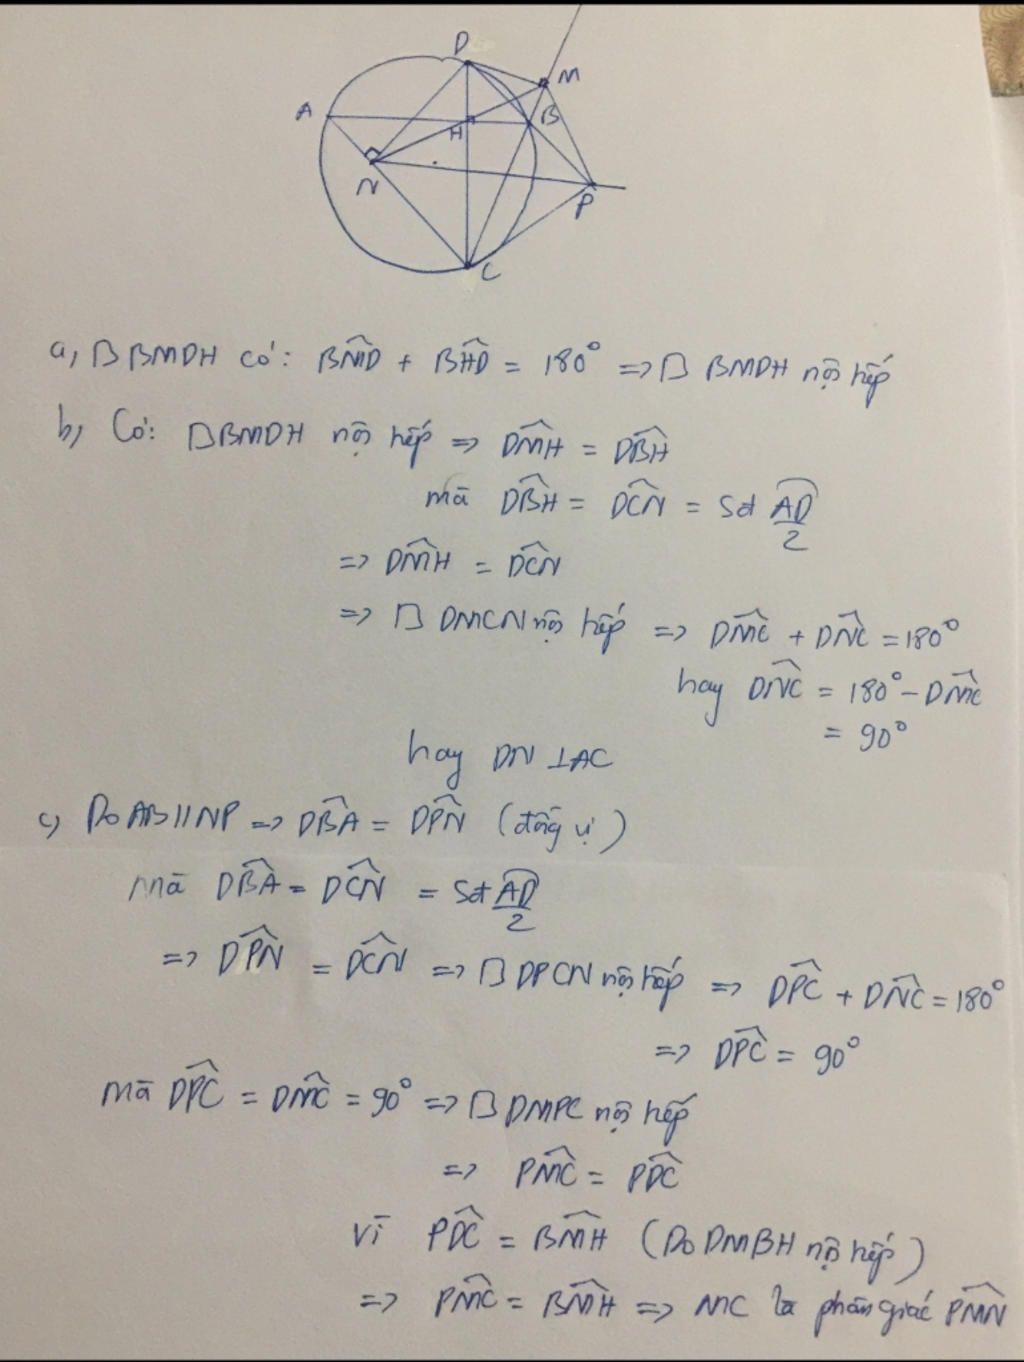 D
M
A
B
H
N
P
C
a, □ BMDH có: BM̂D + BĤD = 180° => □ BMDH nội tiếp
b, Có: □BMDH nội tiếp => DM̂H = DB̂H
mà DB̂H = DĈN = Sđ AD/2
=> DM̂H = DĈN
=> □ DMCN nội tiếp => DM̂C + DN̂C = 180°
hay DN̂C = 180° - DM̂C
= 90°
hay DN ⊥ AC
c) Do AB // NP => DB̂A = DP̂N (đồng vị)
mà DB̂A = DĈN = Sđ AD/2
=> DP̂N = DĈN => □ DPCN nội tiếp => DP̂C + DN̂C = 180°
=> DP̂C = 90°
mà DP̂C = DM̂C = 90° => □ DMPC nội tiếp
=> PM̂C = PD̂C
Vì PD̂C = BM̂H (Do DMBH nội tiếp)
=> PM̂C = BM̂H => MC là phân giác PM̂N